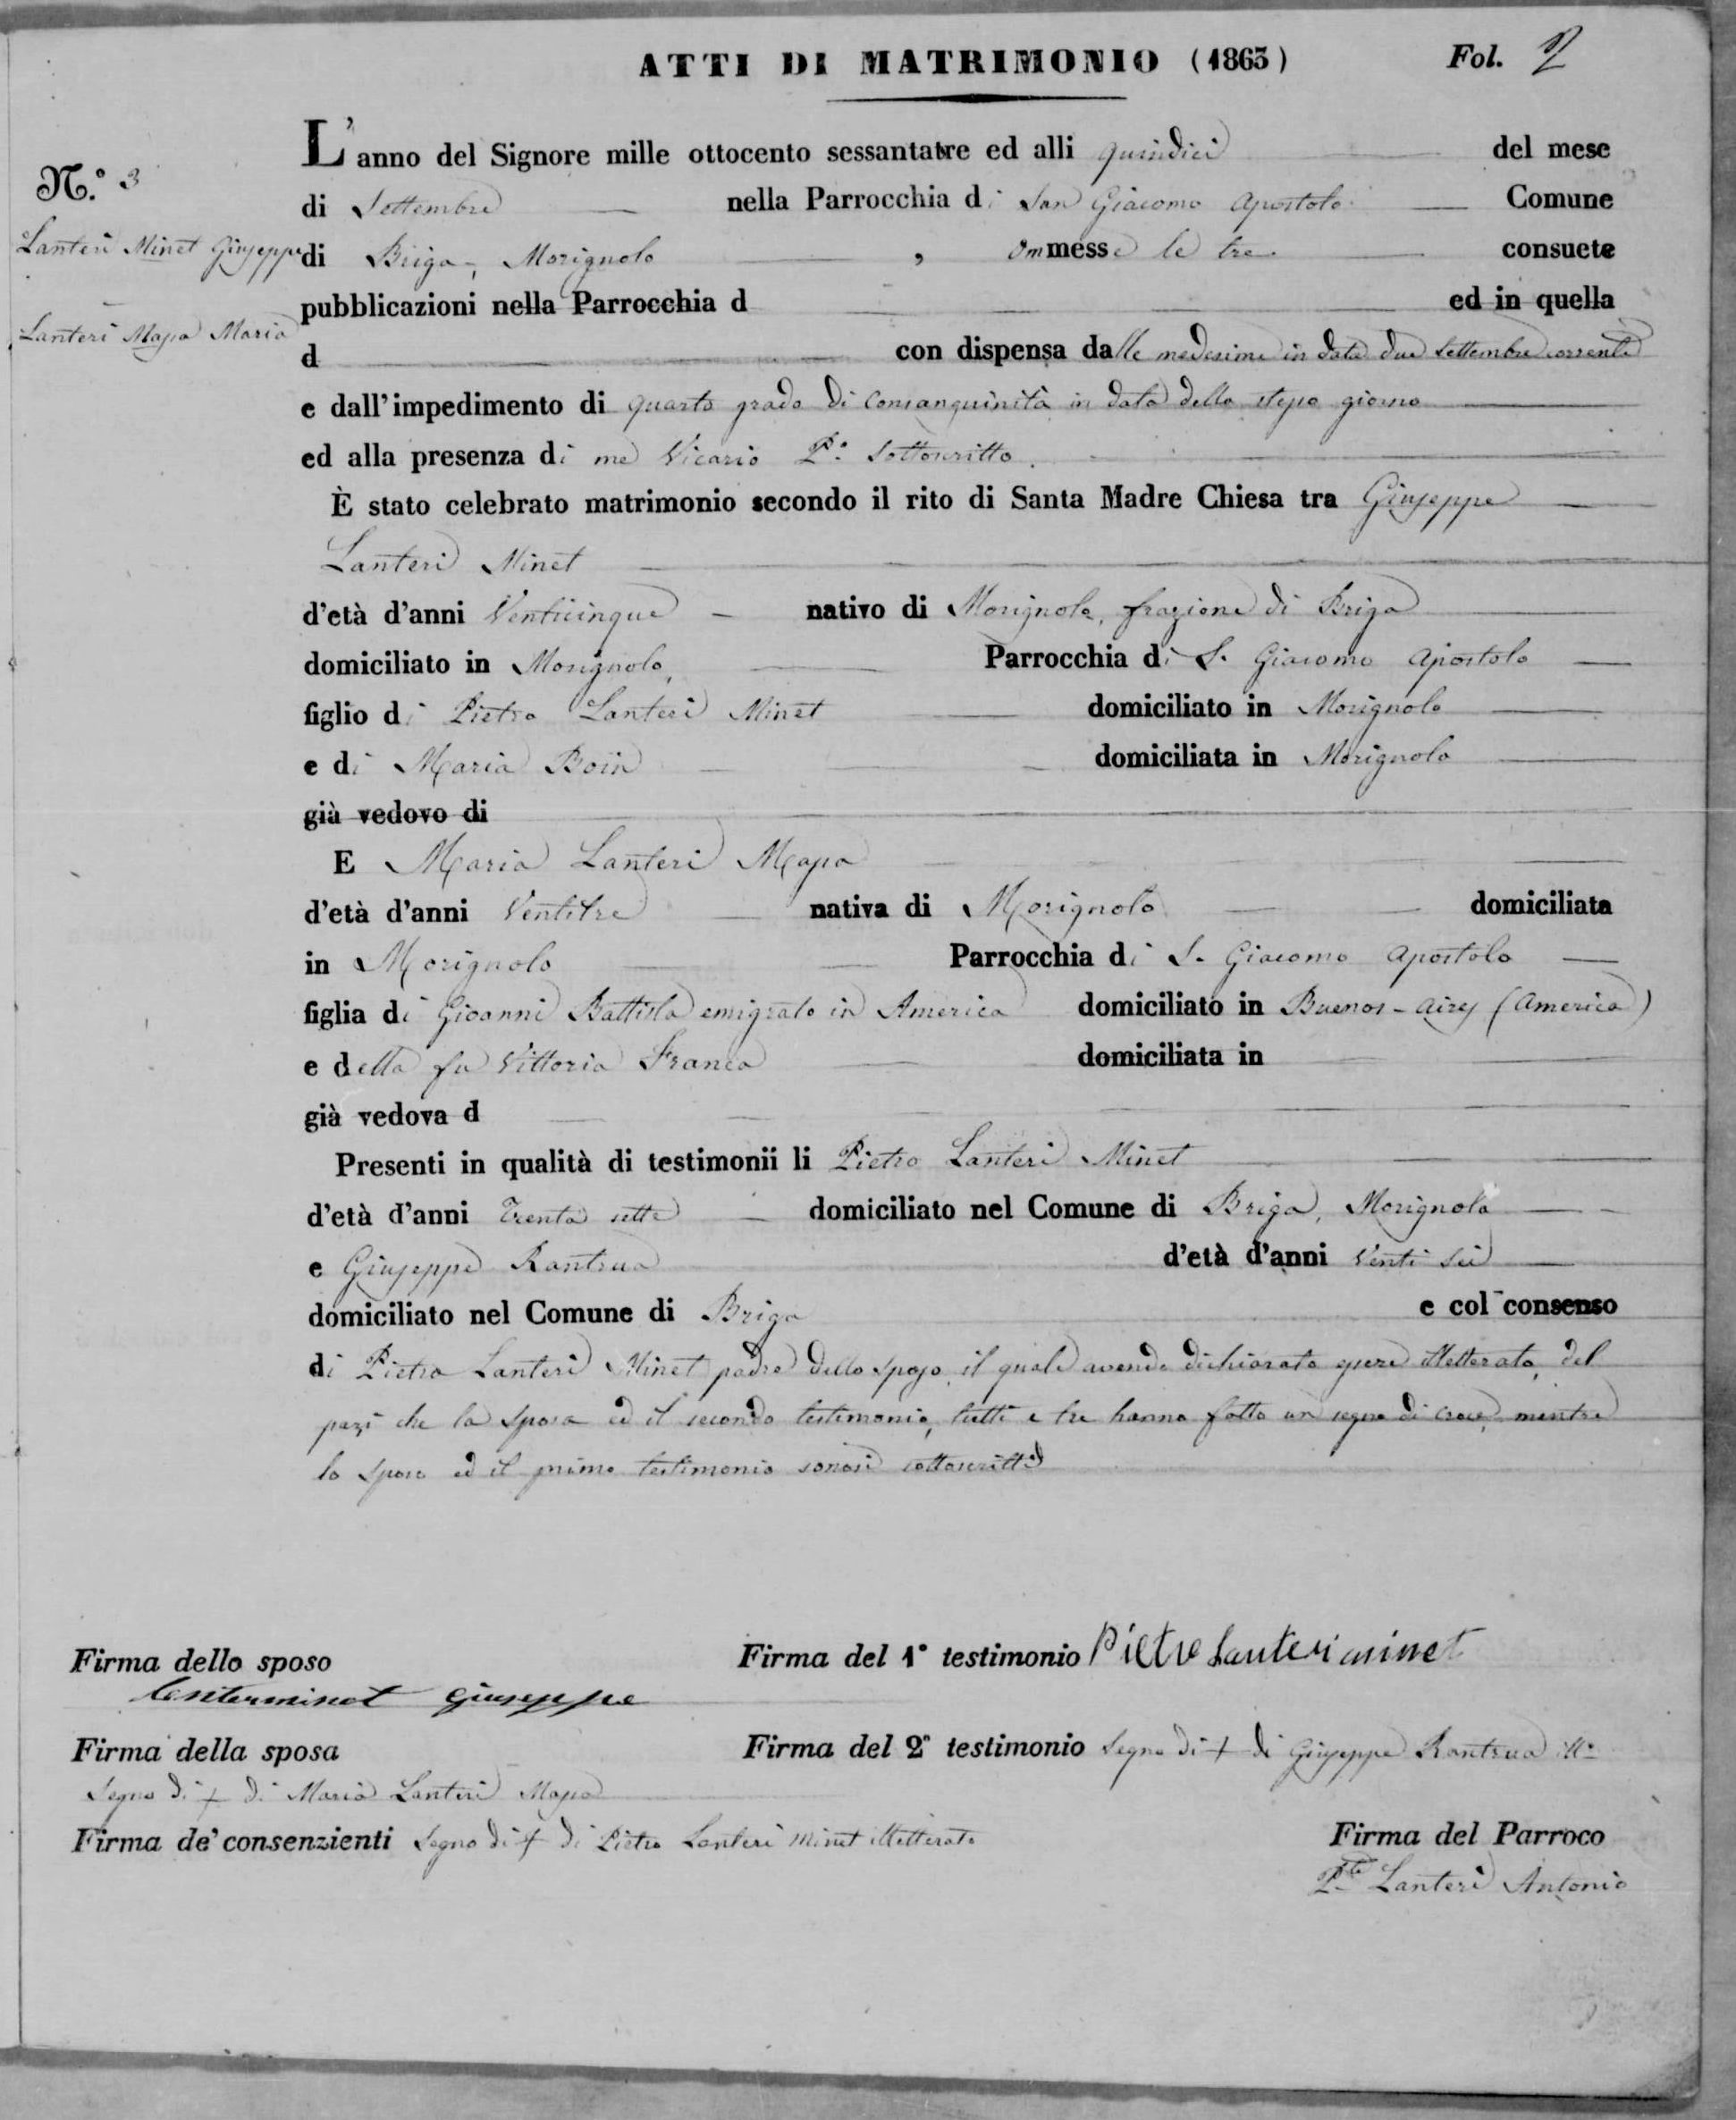 ATTI DI MATRIMONIO (1863) Fol. 2
N.º 3
Lanteri Minet Giuseppe
Lanteri Mapa Maria
L'anno del Signore mille ottocento sessantatre ed alli quindici del mese
di Settembre nella Parrocchia di San Giacomo Apostolo Comune
di Briga, Morignolo, ommesse le tre consuete
pubblicazioni nella Parrocchia d ed in quella
d con dispensa dalle medesime in data due Settembre corrente
e dall'impedimento di quarto grado di consanguinità in data dello stesso giorno
ed alla presenza di me Vicario P.º Sottoscritto.
È stato celebrato matrimonio secondo il rito di Santa Madre Chiesa tra Giuseppe
Lanteri Minet
d'età d'anni Venticinque nativo di Morignolo, frazione di Briga
domiciliato in Morignolo, Parrocchia di S. Giacomo Apostolo
figlio di Pietro Lanteri Minet domiciliato in Morignolo
e di Maria Boin domiciliata in Morignolo
già vedovo di
E Maria Lanteri Mapa
d'età d'anni Ventitre nativa di Morignolo domiciliata
in Morignolo Parrocchia di S. Giacomo Apostolo
figlia di Gioanni Battista emigrato in America domiciliato in Buenos-Aires (America)
e della fu Vittoria Franca domiciliata in
già vedova d
Presenti in qualità di testimonii li Pietro Lanteri Minet
d'età d'anni Trenta sette domiciliato nel Comune di Briga, Morignolo
e Giuseppe Rantrua d'età d'anni Venti sei
domiciliato nel Comune di Briga e col consenso
di Pietro Lanteri Minet padre dello sposo, il quale avendo dichiarato essere illetterato, del
pari che la sposa ed il secondo testimonio, tutti e tre hanno fatto un segno di croce, mentre
lo sposo ed il primo testimonio sonosi sottoscritti
Firma dello sposo Firma del 1º testimonio Pietro Lanteri minet
Lanterminet Giuseppe
Firma della sposa Firma del 2º testimonio Segno di + di Giuseppe Rantrua ill.º
Segno di + di Maria Lanteri Mapa
Firma de' consenzienti Segno di + di Pietro Lanteri Minet illetterato Firma del Parroco
P.te Lanteri Antonio